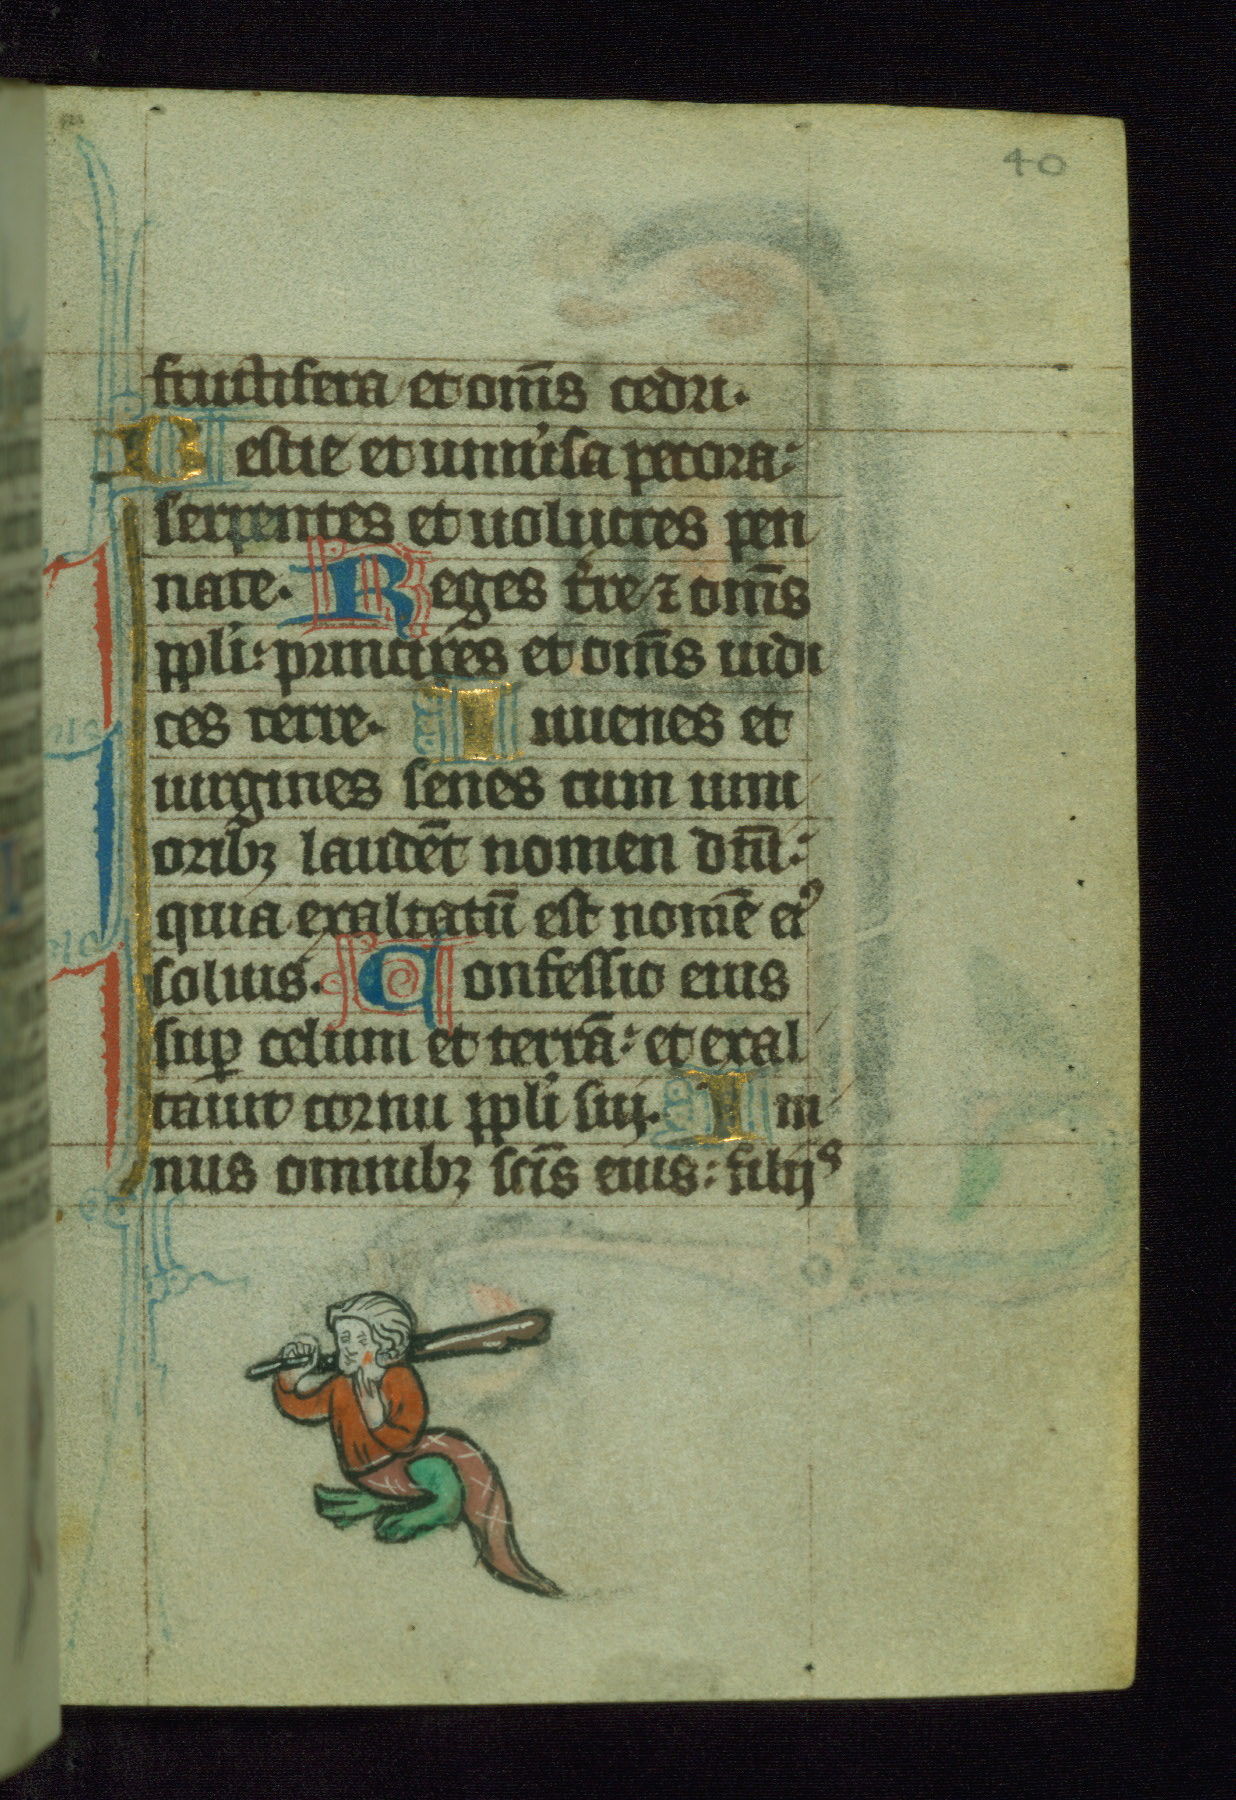 40
fructifera et om̄s cedri.
Bestie et uniu'sa pecora:
serpentes et uolucres pen
nate. Reges t're ⁊ om̄s
ppl'i: principes et om̄s iudi
ces terre. Iuuenes et
uirgines senes cum iuni
oribꝫ laudēt nomen dn̄i:
quia exaltatū est nomē eiꝰ
solius. Confessio eius
suꝑ celum et terrā: et exal
tauit cornu ppl'i sui. Ym
nus omnibꝫ sc̄is eius: filijs